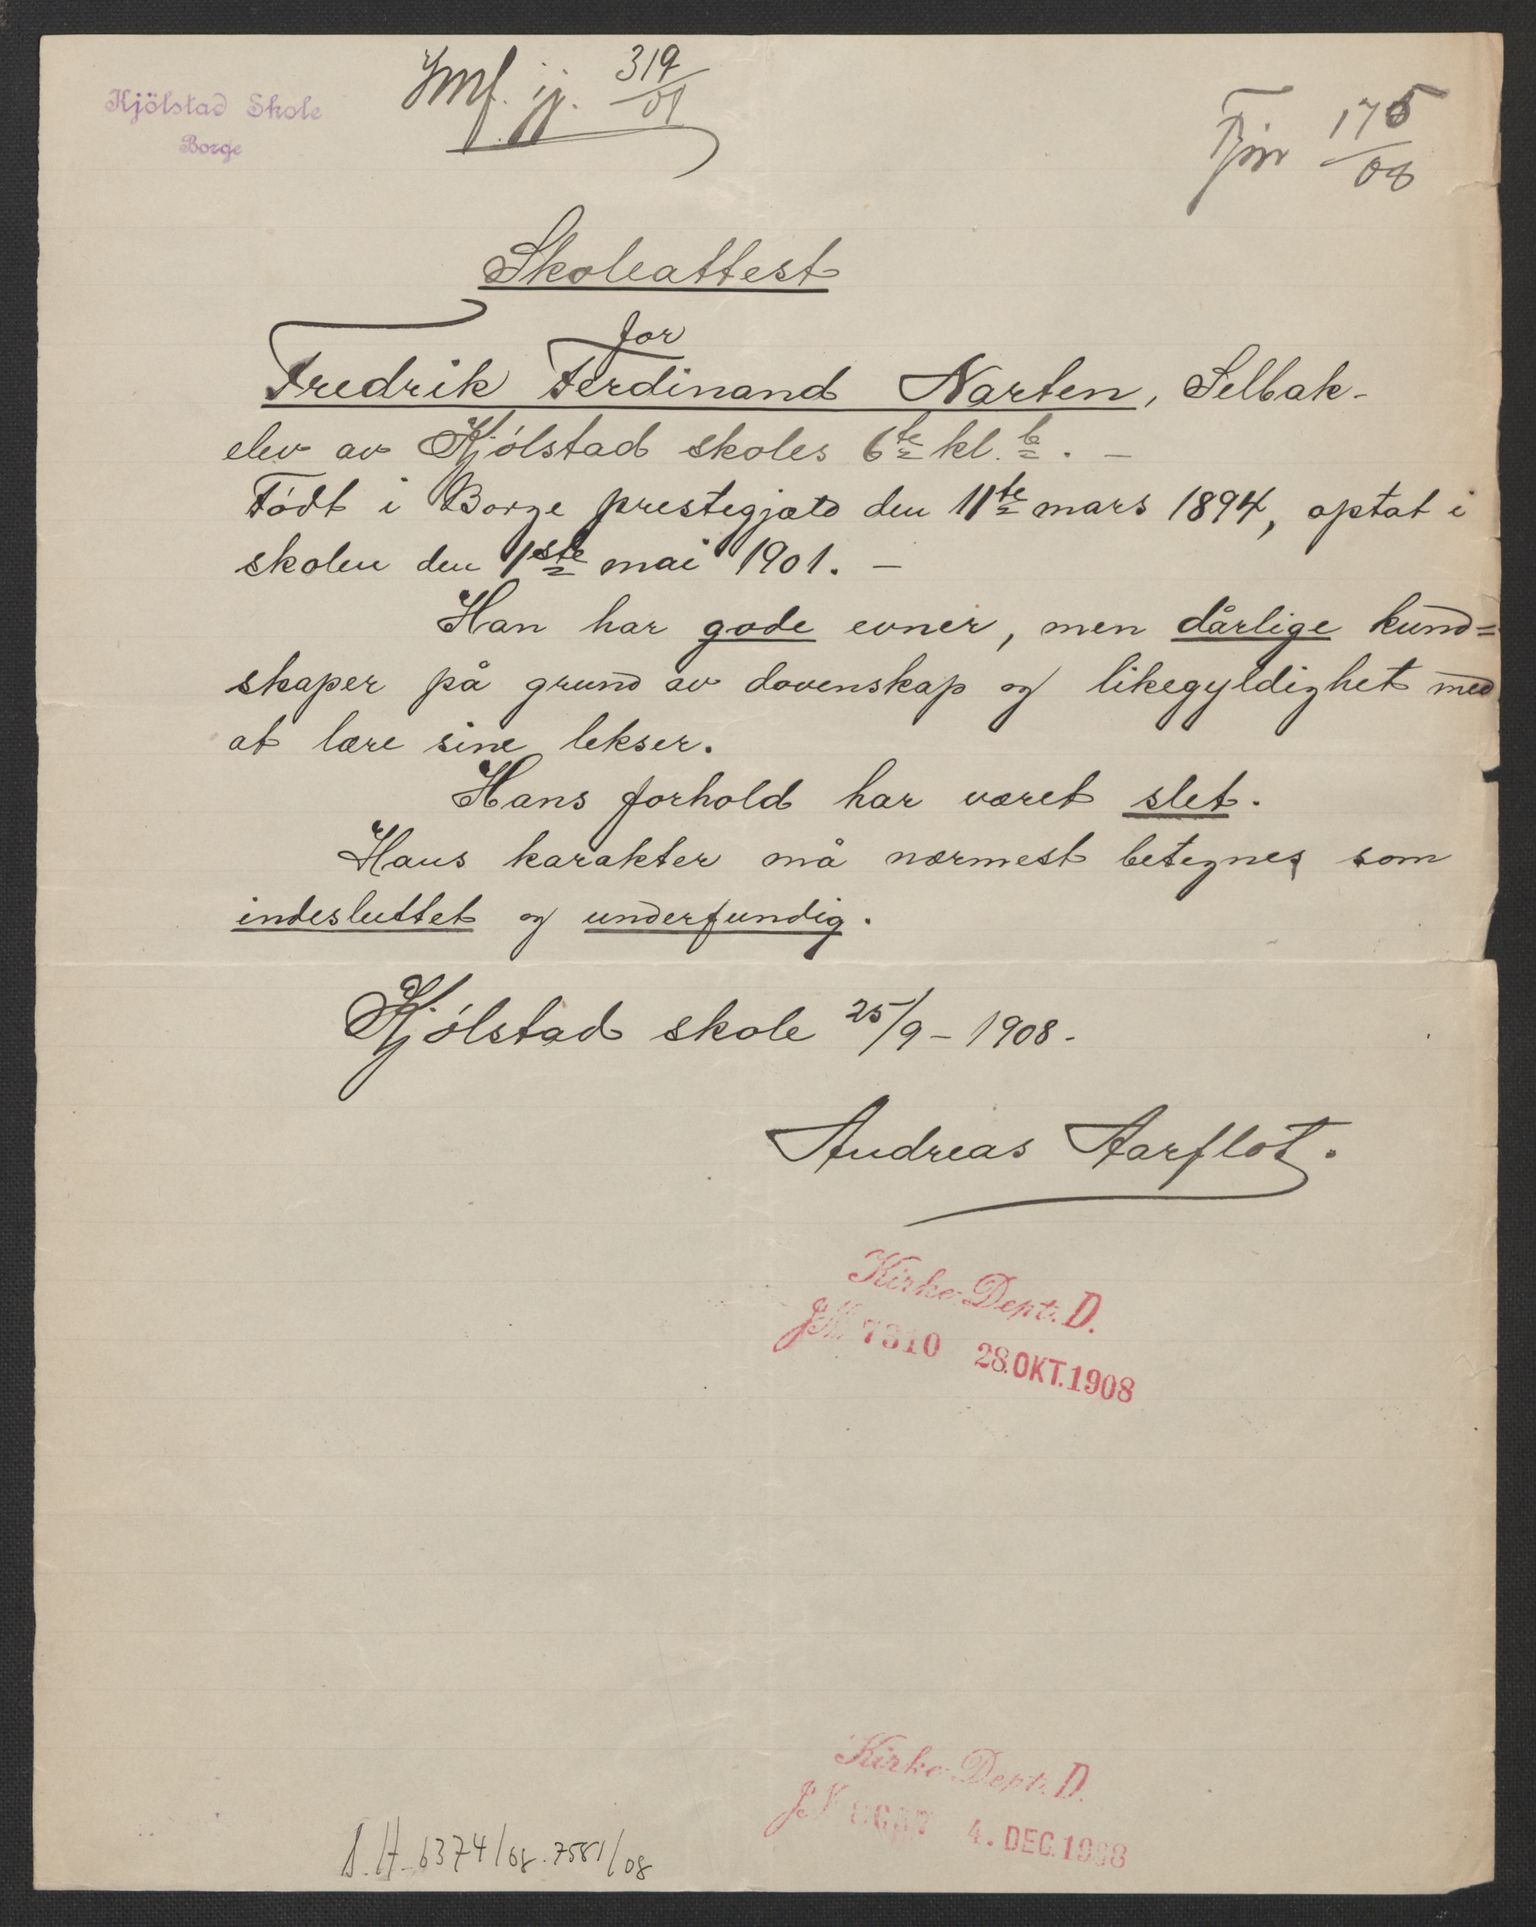 Kjölstad Skole
Borge
319
175
08
Skoleattest
for
Fredrik Ferdinand Narten, Selbak-
elev av Kjólstad skoles 6te kl. b. –
Födt i Borge prestegjæld den 11te mars 1894, optat i
skolen den 1ste mai 1901. –
Han har gode evner, men dårlige kund=
skaper på grund av dovenskap og likegyldighet med
at lære sine lekser.
Hans forhold har været slet.
Hans karakter må nærmest betegnes som
indesluttet og underfundig.
Kjólstad skole 25/9 – 1908.
Andreas Aarflot.
Kirke-Dept. D.
JN. 7310 28.OKT.1908
Kirke-Dept. D.
JN 4. DEC.1908
S.H. 6374/08. 7581/08